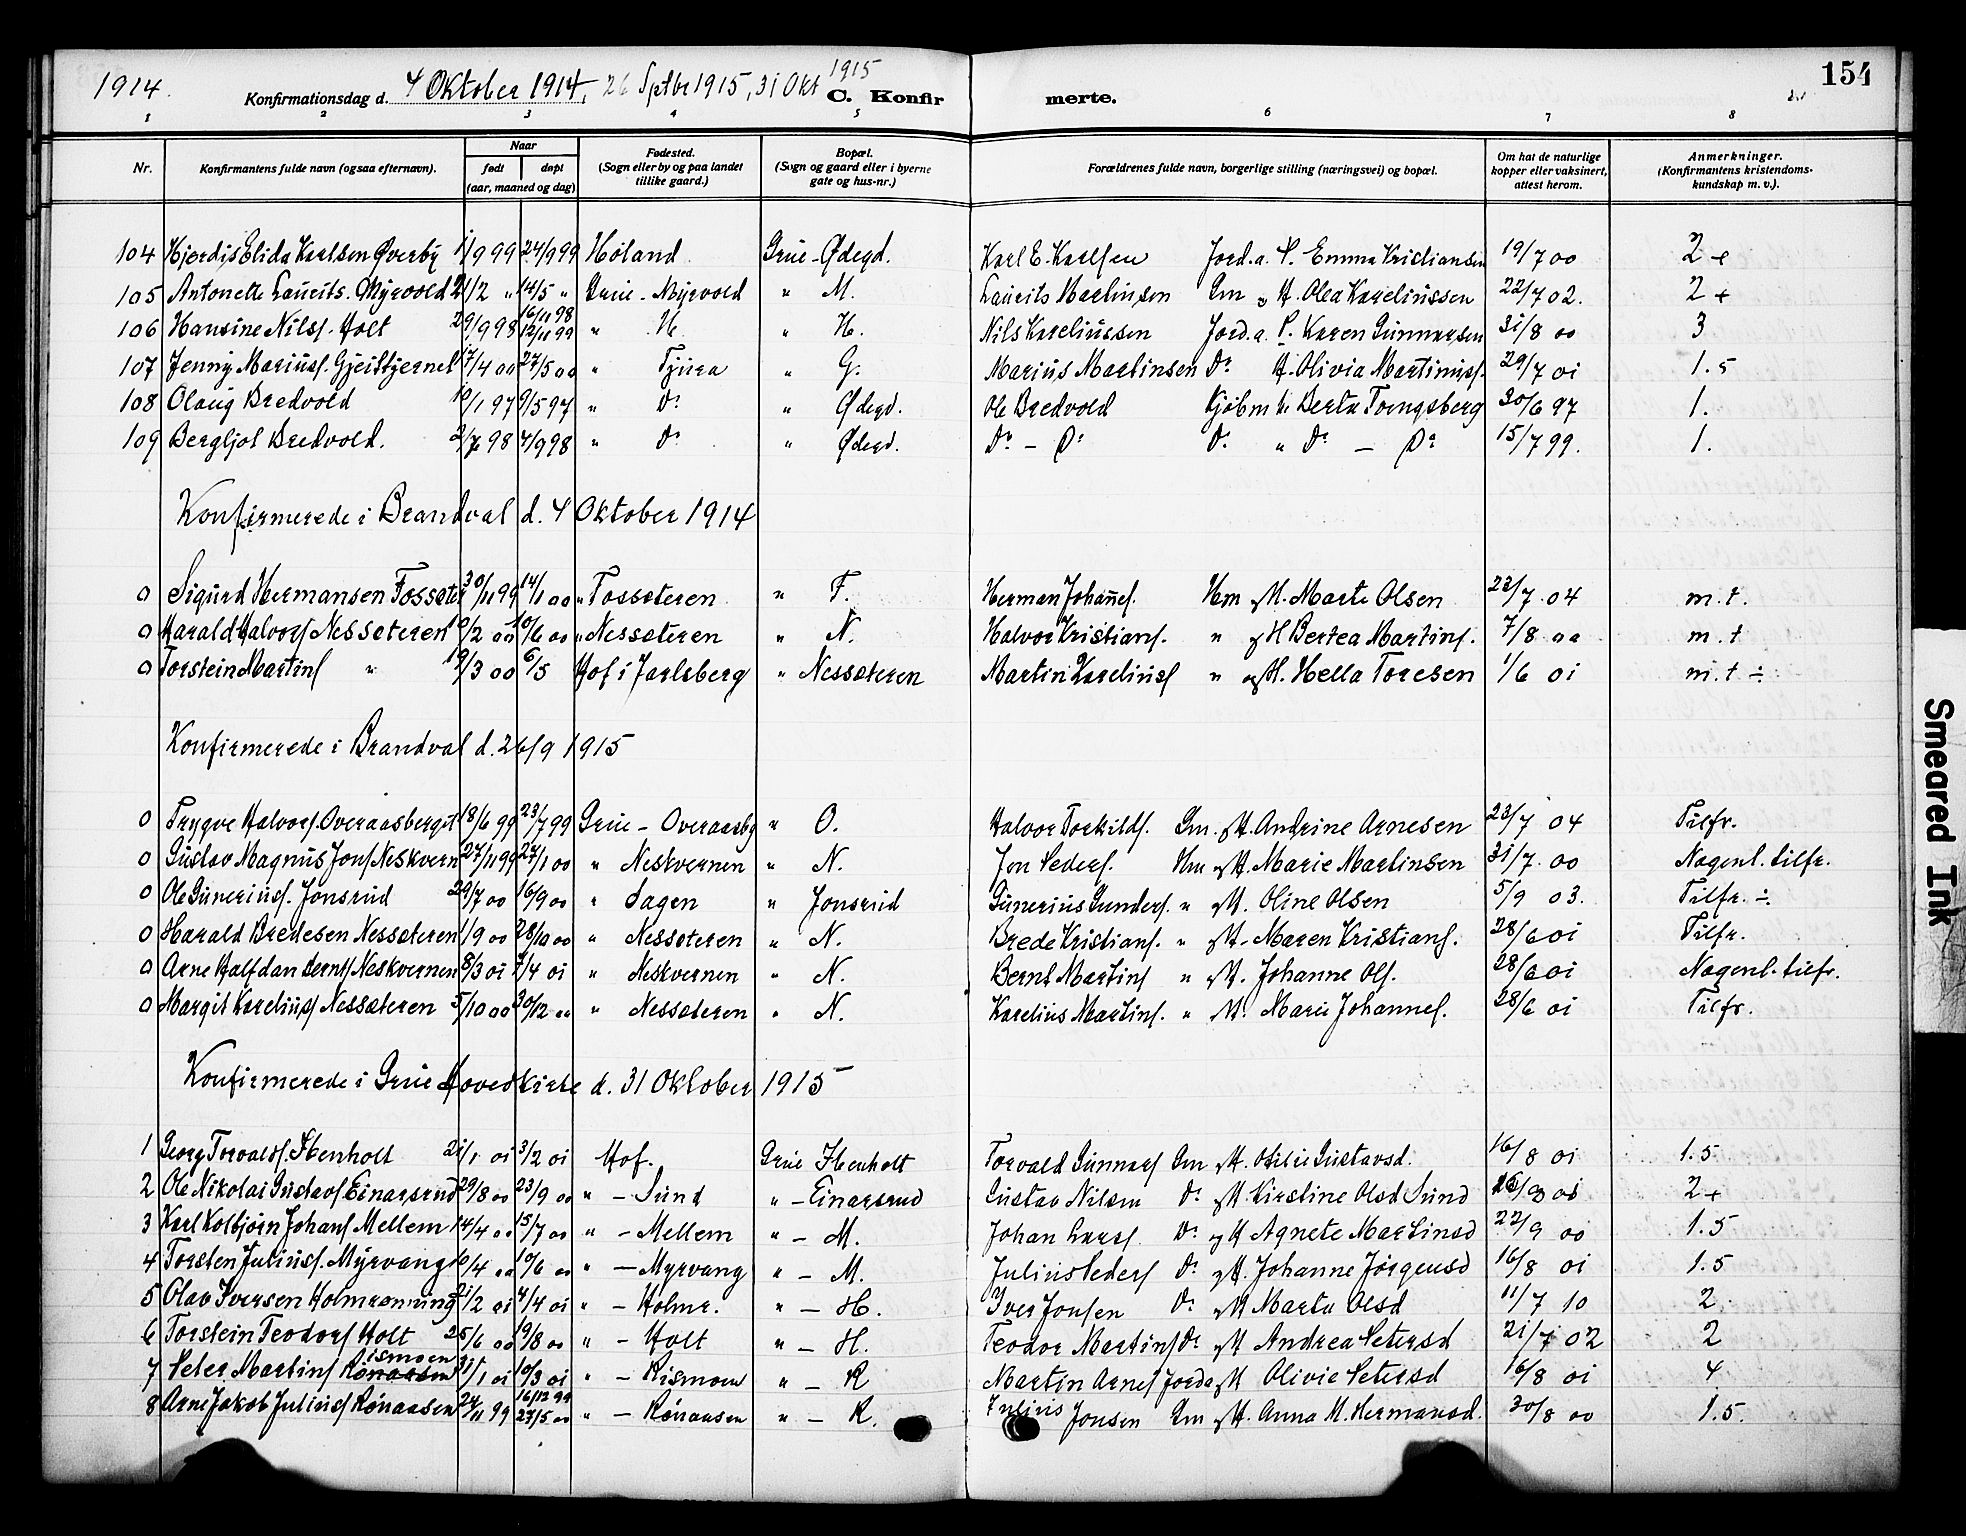 1914. Konfirmationsdag d. 4 Oktober 1914, 26 Septbr 1915, 31 Okt 1915 C. Konfirmerte. 154
1 2 3 4 5 6 7 8
Nr. Konfirmantens fulde navn (ogsaa efternavn). Naar født døpt (aar, maaned og dag) Fødested. (Sogn eller by og paa landet tillike gaard.) Bopæl. (Sogn og gaard eller i byerne gate og hus-nr.) Forældrenes fulde navn, borgerlige stilling (næringsvei) og bopæl. Om hat de naturlige kopper eller vaksinert, attest herom. Anmerkninger. (Konfirmantens kristendomskundskap m. v.).
104 Hjørdis Elida Karlsen Øverby 1/9 99 24/9 99 Høland Grue - Ødegd. Karl E. Karlsen Jord.a. P. Emma Kristiansen 19/7 00 2 +
105 Antonette Laurits. Myrvold 21/2 " 14/5 " Grue - Myrvold " M. Laurits Martinsen Gm " H. Olea Kareliussen 22/7 02. 2 +
106 Hansine Nilsf. Holt 29/9 98 16/11 98 12/11 99 " H " H. Nils Kareliussen Jord.a. P. Karen Gunnarsen 31/8 00 3
107 Jenny Mariusf. Gjeitkjernet 17/4 00 27/5 00 " Tjura " G. Marius Martinsen Do H. Olivia Martinusf. 29/7 01 1.5
108 Olaug Bredvold 10/1 97 9/5 97 " Do " Ødegd. Ole Bredvold Kjøbm h. Berta Tongsberg 30/6 97 1.
109 Bergljot Bredvold. 2/7 98 4/9 98 " Do " Ødegd. Do - Do Do " Do - Do 15/7 99. 1.
Konfirmerede i Brandval d. 4 Oktober 1914
0 Sigurd Hermansen Fosseter 30/11 99 14/1 00 " Fosseteren " F. Herman Johannesf. Hm og H. Marte Olsen 23/7 04 m.t.
0 Harald Halvorsf Nesseteren 10/2 00 10/6 00 " Nesseteren " N. Halvor Kristiansf. " og H Bertea Martinsf. 7/8 00 m.t
0 Torstein Martinsf " 19/3 00 6/5 Hof i Jarlsberg " Nesseteren Martin Kareliusf " og H. Hella Toresen 1/6 01 m.t ÷
Konfirmerede i Brandval d. 26/9 1915
0 Trygve Halvorsf. Overaasberget 18/6 99 23/7 99 Grue - Overaasbg " O. Halvor Torkildsf. Gm. og H. Andrine Arnesen 23/7 04 Tilfr.
0 Gustav Magnus Jonsf Neskvern 27/11 99 27/1 00 " Neskvernen " N. Jon Pedersf. Hm og H. Marie Martinsen 31/7. 00 Nogenl. tilfr.
0 Ole Guneriusf. Jonsrud 29/7 00 16/9 00 " Sagen " Jonsrud Gunerius Gundersf. " og H. Oline Olsen 5/9 03. Tilfr. ÷
0 Harald Bredesen Nesseteren 1/9 00 28/10 00 " Nesseteren " N. Brede Kristiansf. " og H. Maren Kristiansf. 28/6 01 Tilfr.
0 Arne Halfdan Berntsf Neskvernen 8/3 01 7/4 01 " Neskvernen " N. Bernt Martinsf " og H. Johanne Olsf. 28/6 01 Nogenl. tilfr.
0 Margit Kareliusf Nesseteren 5/10 00 30/12 00 " Nesseteren " N. Karelius Martinsf. " og H. Marie Johannesf. 28/6 01 Tilfr.
Konfirmerede i Grue Hovedkirke d. 31 Oktober 1915
1 Georg Torvaldsf. Ibenholt 21/1 01 3/2 01 Hof. Grue Ibenholt Torvald Gunnarsf Gm og H. Otilie Gustavsd. 16/8 01 1.5
2 Ole Nikolai Gustavsf Einarsrud 29/8 00 23/9 00 " - Sund " - Einarsrud Gustav Nilsen Do og H. Kirstine Olsd Sund 2+
3 Karl Kolbjørn Johansf Mellem 14/4 00 15/7 00 " - Mellem " - M. Johan Larsf. Do og H Agnete Martinsd 22/9 00 1.5
4 Torsten Juliusf. Myrvang 10/4 00 10/6 00 " - Myrvang " - M. Julius Pedersf Do og H. Johanne Jørgensd 16/8 01 1.5
5 Olav Iversen Holmrønning 21/2 01 4/4 01 " - Holmr. " - H. Iver Jonsen Do og H Marta Olsd 11/7 10 2
6 Torstein Teodorsf Holt 25/6 00 19/8 00 " - Holt " - H. Teodor Martinsf Do og H Andrea Petersd 21/7 02 2
7 Peter Martinsf Rismoen 31/1 01 10/3 01 " - Rismoen " - R Martin Arnesf Jorda og H Olivie Petersd 16/8 01 4
8 Arne Jakob Juliusf Rønaasen 24/11 99 16/12 99 27/5 00 " - Rønaasen " - R. Julius Jonsen Gm og H. Anna M. Hermansd. 30/8 00 1.5.
Smeared Ink